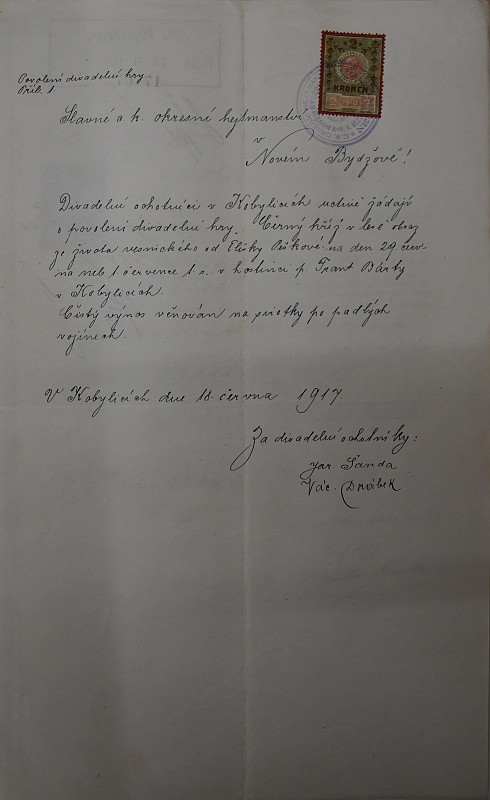 Povolení divadelní hry
Příl. 1
KRONEN
Slavné c. k. okresní hejtmanství
v
Novém Bydžově!
Divadelní ochotníci v Kobylicích uctivě žádají
o povolení divadelní hry. Černý kříž v lese obraz
ze života vesnického od Elišky Peškové na den 29. červ-
na neb 1 července t. r. v hostinci p. Frant Bárty
v Kobylicích.
Čistý výnos věnován na sirotky po padlých
vojínech.
V Kobylicích dne 18. června 1917.
Za divadelní ochotníky:
Jar Šanda
Vác. Drábek